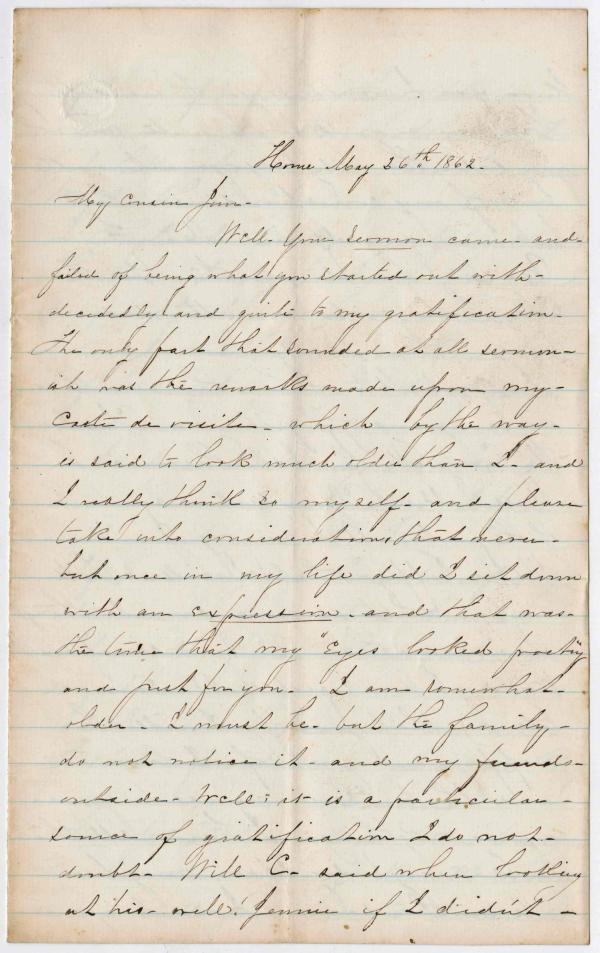 Home May 26th 1862.
My Cousin Jim-
Well- Your sermon came- and-
failed of being what you started out with-
decidedly and quite to my gratification-
The only part that sounded at all sermon-
ish was the remarks made upon my-
Carte de visite- which by the way-
is said to look much older than I- and
I really think so myself- and please
take into consideration, that never-
but once in my life did I sit down
with an expression- and that was-
the time that my "Eyes looked frosty"
and just for you- I am somewhat-
older- I must be- but the family-
do not notice it- and my friends-
outside- Well; it is a particular-
source of gratification I do not-
doubt- Will C- said when looking
at his- well! Jennie if I didn't-